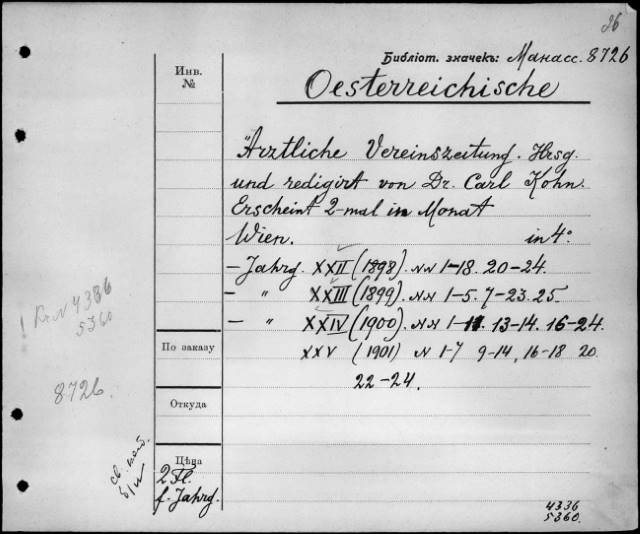 36
Библіот. значекъ: Манасс. 8726
Инв.
№
Oesterreichische
Ärztliche Vereinszeitung. Hrsg.
und redigirt von Dr. Carl Kohn.
Erscheint 2-mal in Monat
Wien. in 4°
– Jahrg. XXII (1898). NN 1–18. 20–24.
– " XXIII (1899). NN 1–5. 7–23. 25.
– " XXIV (1900). NN 1–11. 13–14. 16–24.
XXV (1901) N 1–7 9–14, 16–18 20
22–24.
! 4336
5360
8726.
По заказу
Откуда
Цѣна
2 Fl.
f. Jahrg.
4336
5360.